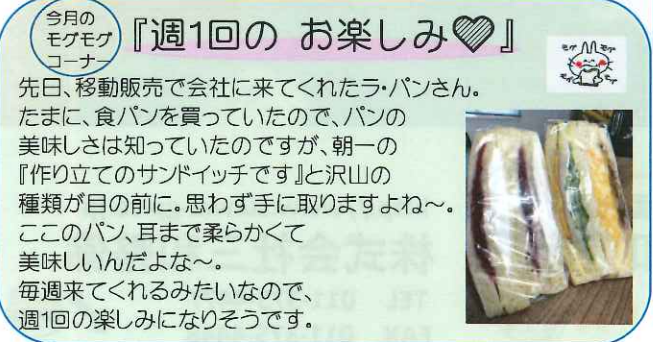 今月の
モグモグ
コーナー
『週1回の お楽しみ♡』
先日、移動販売で会社に来てくれたラ・パンさん。
たまに、食パンを買っていたので、パンの
美味しさは知っていたのですが、朝一の
『作り立てのサンドイッチです』と沢山の
種類が目の前に。思わず手に取りますよね～。
ここのパン、耳まで柔らかくて
美味しいんだよな～。
毎週来てくれるみたいなので、
週1回の楽しみになりそうです。
モグ モグ